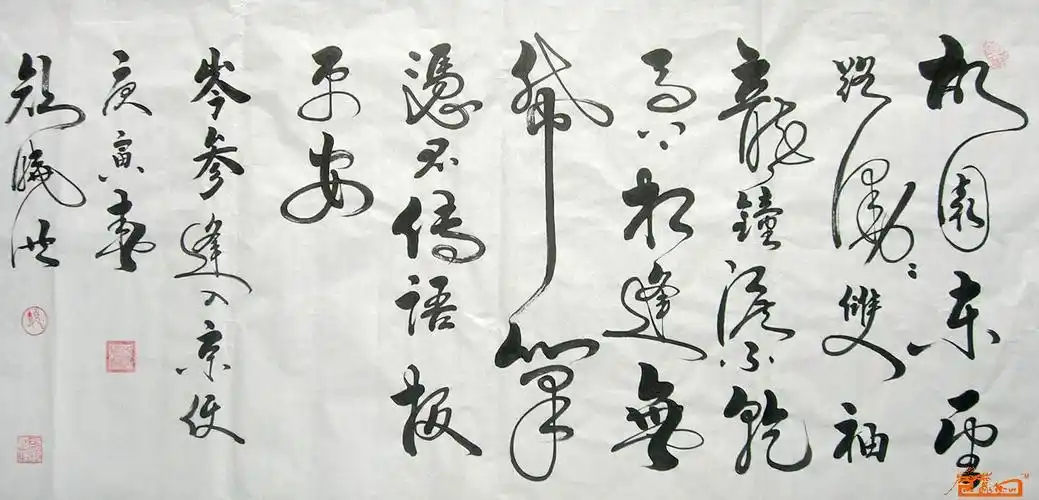 故園東望
路漫漫雙袖
龍鐘淚不乾
馬上相逢無
紙筆
憑君傳語報
平安
岑參逢入京使
庚寅春